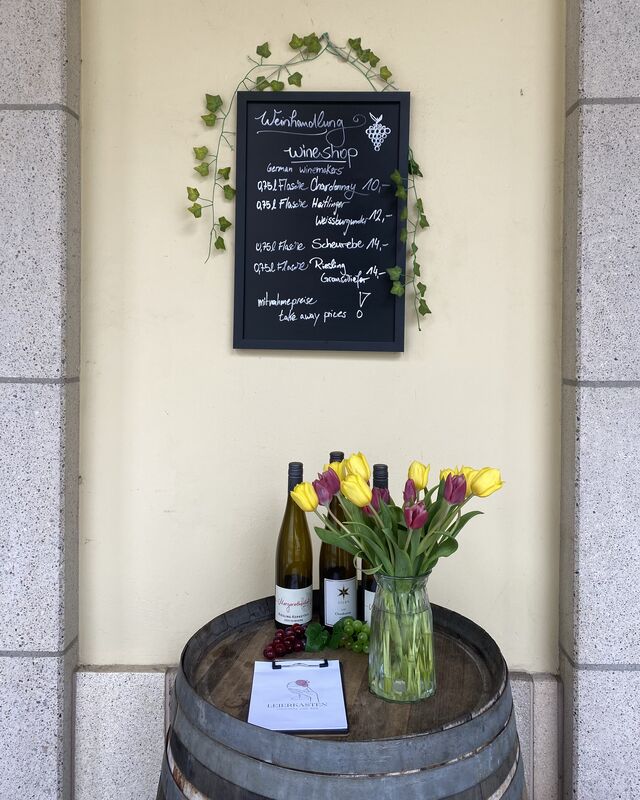 Weinhandlung
wineshop
German winemakers
0,75l Flasche Chardonnay 10,-
0,75l Flasche Heitlinger
Weissburgunder 12,-
0,75l Flasche Scheurebe 14,-
0,75l Flasche Riesling 14,-
mitnahmepreise
take away prices !
LEIERKASTEN